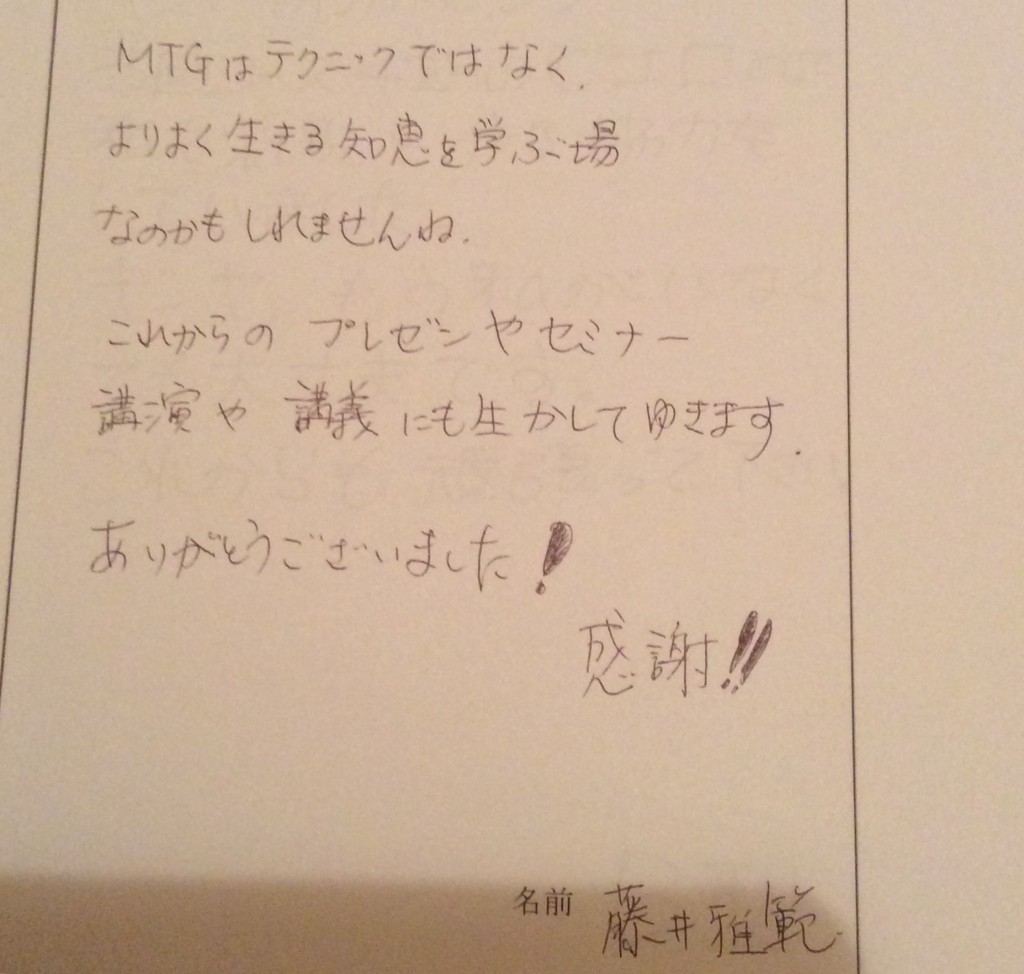 MTGはテクニックではなく、
よりよく生きる知恵を学ぶ場
なのかもしれませんね.
これからの プレゼンやセミナー
講演や 講義にも生かしてゆきます.
ありがとうございました!
感謝!!
名前 藤井雅範